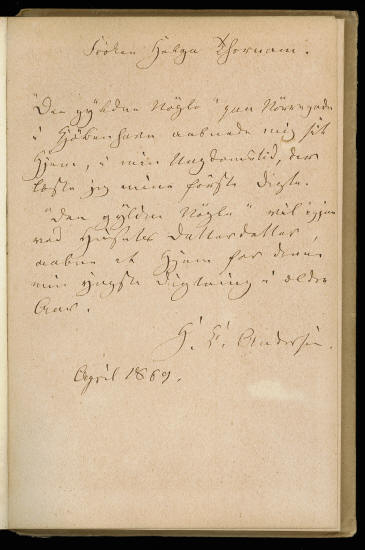 Frøken Helga Thornam.
"Den gyldne Nøgle" paa Nørregade
i Kjøbenhavn aabnede mig sit
Hjem, i min Ungdomstid, der
læste jeg mine første Digte.
"Den gyldne Nøgle" vil igjen
ved Husets Datterdatter,
aabne et Hjem for denne
min yngste Digtning i ældre
Aar.
H. C. Andersen.
April 1869.